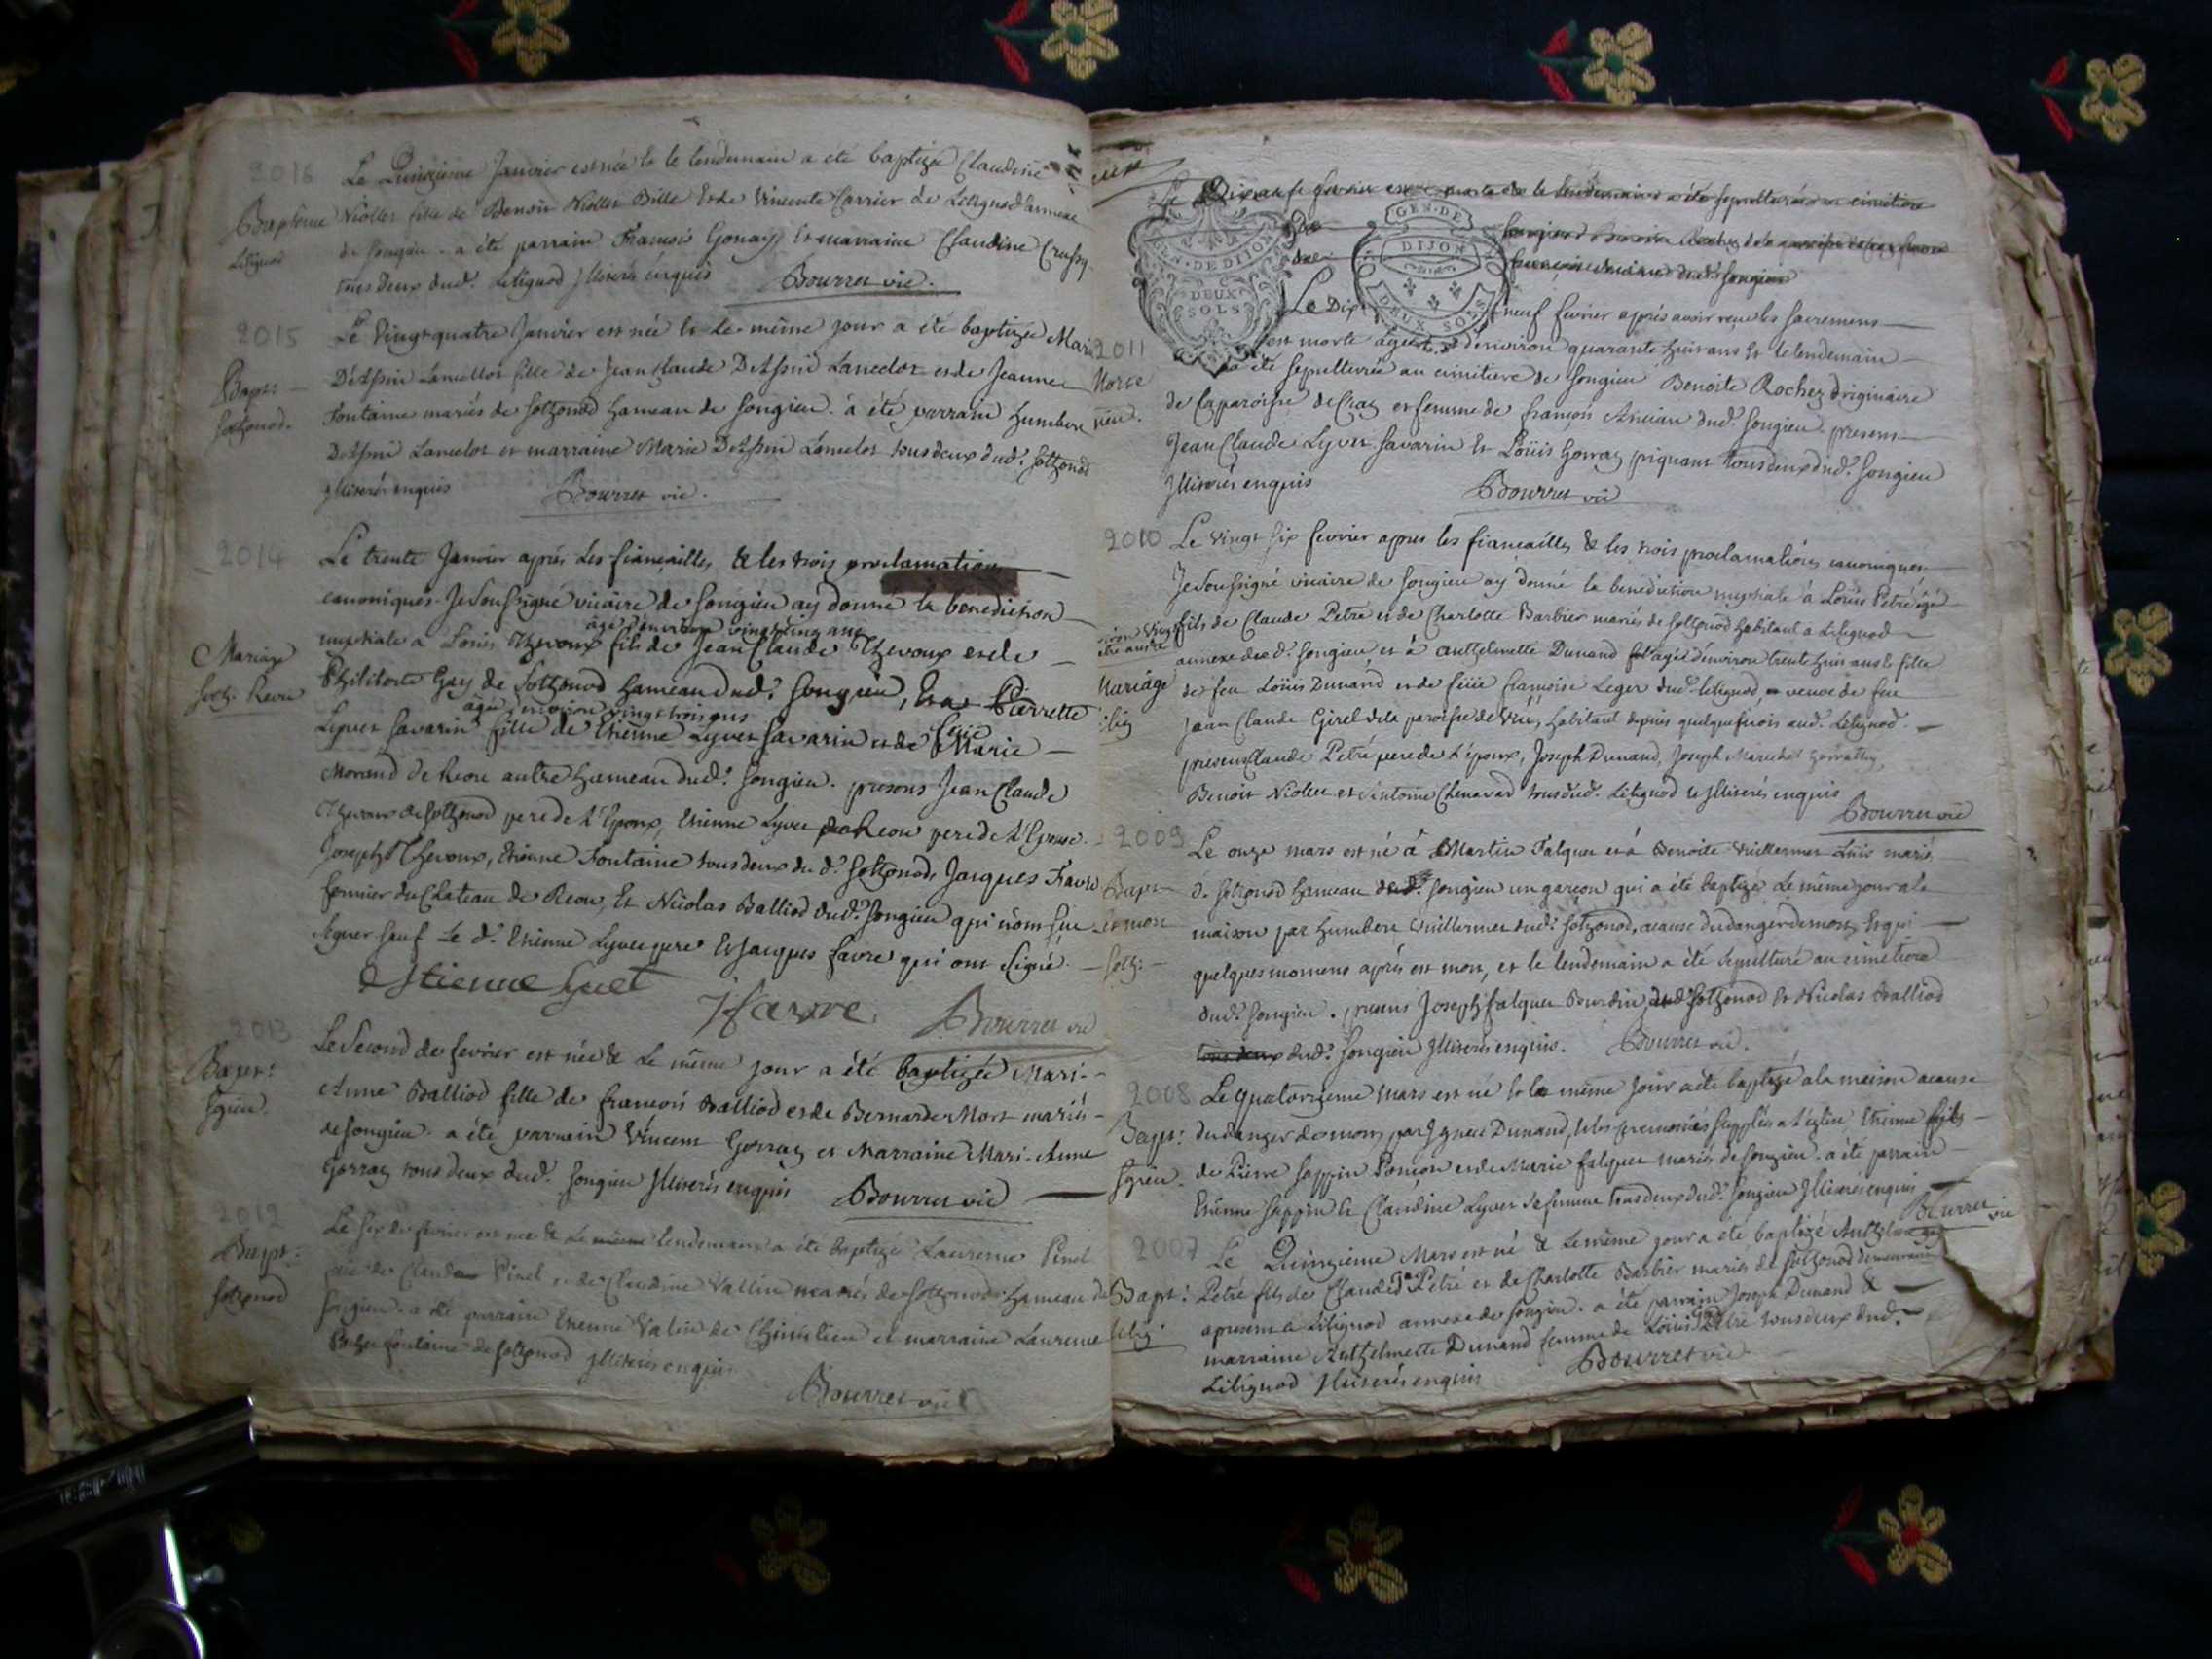 2016
Le Quinzième Janvier est née & le lendemain a été baptizée Claudine
Baptême
Niollet fille de Benoit Niollet Bille et de Vincente Carrier de Litignod annexe
Litignod
de Songieu. a été parrain François Gonay et marraine Claudine
tous deux dud. Litignod Illiterés enquis Bourret vic.
2015
Le vingt quatre Janvier est née & le même jour a été baptizée Marie
Bapt:
Lancellot fille de Jean Claude Lancelot et de Jeanne
Sothonod.
Fontaine mariés de Sothonod hameau de Songieu. a été parrain humbert
Lancelot et marraine Marie Lancelot tous deux dud. Sothonod
Illiterés enquis Bourret vic.
2014
Le trente Janvier après les fiançailles & les trois proclamations
canoniques Je soussigné vicaire de Songieu ay donné la benediction
agé d'environ vingt cinq ans
Mariage
nuptiale a Louis Thevoux fils de Jean Claude Thevoux et de
Soth. Reou
Philiberte Gay de Sothonod hameau dud. Songieu, Et a Pierrette
agée d'environ vingt trois ans
Lyvet Savarin fille de Etienne Lyvet Savarin et de feüe Marie
Morand de Reou autre hameau dud. Songieu. presens Jean Claude
Thevoux de Sothonod pere de l'Epoux, Etienne Lyvet de Reou pere de l'Epouse.
Joseph Thevoux, Etienne Fontaine tous deux du d. Sothonod, Jacques Favre
fermier du Chateau de Reou, Et Nicolas Balliod dud. Songieu qui n'ont sçu
signer sauf le d. Etienne Lyvet pere Et Jacques favre qui ont signé.
Estienne Lyvet J favre. Bourret vic
2013
Le Second de fevrier est née & le même jour a été baptizée Mari-
Bapt:
Sgieu.
Anne Balliod fille de françois Balliod et de Bernarde Mort mariés
de Songieu. a été parrain Vincent Gorraz et Marraine Mari-Anne
Gorraz tous deux dud. Songieu Illiterés enquis Bourret vic
2012
Le six de fevrier est née & le même lendemain a été baptizée Laurence Pinel
Bapt:
Sothonod
fille de Claude Pinel et de Claudine Vallin mariés de Sothonod hameau de
Songieu. a été parrain Etienne Valin de et marraine Laurence
fontaine de Sothonod Illiterés enquis
Bourret vic
Le Dix neuf fevrier est morte & le lendemain a été sepulturée au cimitiere
GEN. DE DIJON
DEUX SOLS
GEN. DE
DIJON
DEUX SOLS
Le Dix neuf fevrier après avoir reçu les sacremens
2011
est morte agée d'environ quarante huit ans & le lendemain
Morte
a été sepulturée au cimitiere de Songieu Benoite Rochez originaire
de la paroisse de et femme de françois Ancian dud. Songieu. presens
Jean Claude Lyvet Savarin & Loüis Gorraz piquant tous deux dud. Songieu
Illiterés enquis Bourret vic
2010
Le vingt six fevrier apres les fiançailles & les trois proclamations canoniques
Je soussigné vicaire de Songieu ay donné la benediction nuptiale à Loüis Petré agé
fils de Claude Petré et de Charlotte Barbier mariés de Sothonod habitant a Litignod
annexe dud. Songieu et à Anthelmette Dunand agée d'environ trente huit ans & fille
Mariage
de feu Loüis Dunand et de feüe françoise Leger dud. Litignod, veuve de feu
Jean Claude Girel de la paroisse de habitant depuis quelquefois aud. Litignod.
presens Claude Petré pere de l'époux, Joseph Dunand, Joseph Marechal
Benoit Niollet et Antoine Chenavard tous dud. Litignod & Illiterés enquis
Bourret vic
2009
Le onze mars est né à Martin Falquet et à Benoite Vuillermet Luis mariés
Bapt
d. Sothonod hameau dud. Songieu un garçon qui a été baptizé le même jour a la
et mort
maison par humbert Vuillermet dud. Sothonod, acause du danger de mort, Et qui
Soth:
quelques momens après est mort, et le lendemain a été sepulturé au cimetiere
dud. Songieu. presens Joseph falquet Bourdin dud. Sothonod & Nicolas Balliod
tous deux dud. Songieu Illiterés enquis. Bourret vic.
2008
Le quatorzieme mars est né & le même jour a été baptizé a la maison acause
Bapt:
du danger de mort, par Ignace Dunand, & les ceremonies supplées a l'église Etienne fils
Sgieu.
de Pierre Sappin Poncon et de Marie falquet mariés de Songieu. a été parrain
Etienne Sappin & Claudine Lyvet sa femme tous deux dud. Songieu Illiterés enquis
Bourret vic
2007
Le Quinzieme Mars est né & le même jour a été baptizé
Bapt:
Petré fils de Claude Petré et de Charlotte Barbier mariés de Sothonod demeurant
Litig
apresent a Litignod annexe de Songieu. a été parrain Joseph Dunand &
marraine Anthelmette Dunand femme de Loüis Petré tous deux dud.
Litignod Illiterés enquis Bourret vic